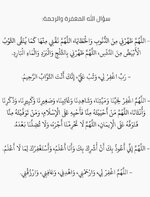 سؤال الله المغفرة والرحمة:
- اللَّهُمَّ طَهِّرْنِي مِنَ الذُّنُوبِ وَالْخَطَايَا، اللَّهُمَّ نَقِّنِي مِنْهَا كَمَا يُنَقَّى الثَّوْبُ
الْأَبْيَضُ مِنَ الدَّنَسِ، اللَّهُمَّ طَهِّرْنِي بِالثَّلْجِ وَالْبَرَدِ وَالْمَاءِ الْبَارِدِ.
- رَبِّ اغْفِرْ لِي، وَتُبْ عَلَيَّ، إِنَّكَ أَنْتَ التَّوَّابُ الرَّحِيمُ.
- اللَّهُمَّ اغْفِرْ لِحَيِّنَا وَمَيِّتِنَا، وَشَاهِدِنَا وَغَائِبِنَا، وَصَغِيرِنَا وَكَبِيرِنَا، وَذَكَرِنَا
وَأُنْثَانَا، اللَّهُمَّ مَنْ أَحْيَيْتَهُ مِنَّا فَأَحْيِهِ عَلَى الْإِسْلَامِ، وَمَنْ تَوَفَّيْتَهُ مِنَّا
فَتَوَفَّهُ عَلَى الْإِيمَانِ، اللَّهُمَّ لَا تَحْرِمْنَا أَجْرَهُ، وَلَا تُضِلَّنَا بَعْدَهُ.
- اللَّهُمَّ إِنِّي أَعُوذُ بِكَ أَنْ أُشْرِكَ بِكَ وَأَنَا أَعْلَمُ، وَأَسْتَغْفِرُكَ لِمَا لَا أَعْلَمُ.
- اللَّهُمَّ اغْفِرْ لِي، وَارْحَمْنِي، وَاهْدِنِي، وَعَافِنِي، وَارْزُقْنِي.